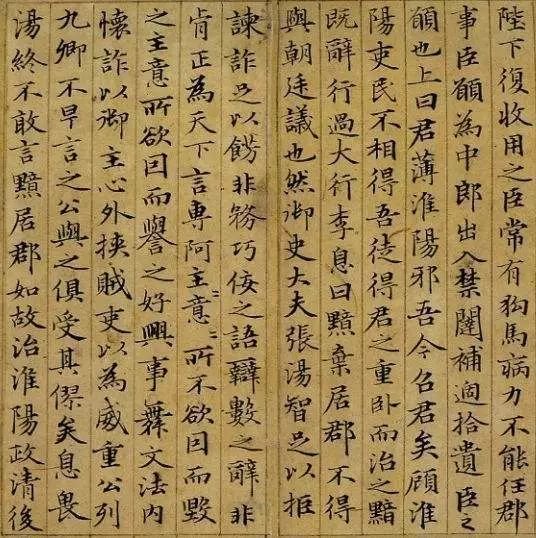 陛下復收用之臣常有狗馬病力不能任郡
事臣願為中郎出入禁闥補過拾遺臣之
願也上曰君薄淮陽邪吾今召君矣顧淮
陽吏民不相得吾徒得君之重卧而治之黯
既辭行過大行李息曰黯棄居郡不得
與朝廷議也然御史大夫張湯智足以拒
諫詐足以飾非務巧佞之語辯數之辭非
肯正為天下言專阿主〻意〻所不欲因而毀
之主意所欲因而譽之好興事舞文法內
懷詐以御主心外挾賊吏以為威重公列
九卿不早言之公與之俱受其僇矣息畏
湯終不敢言黯居郡如故治淮陽政清後